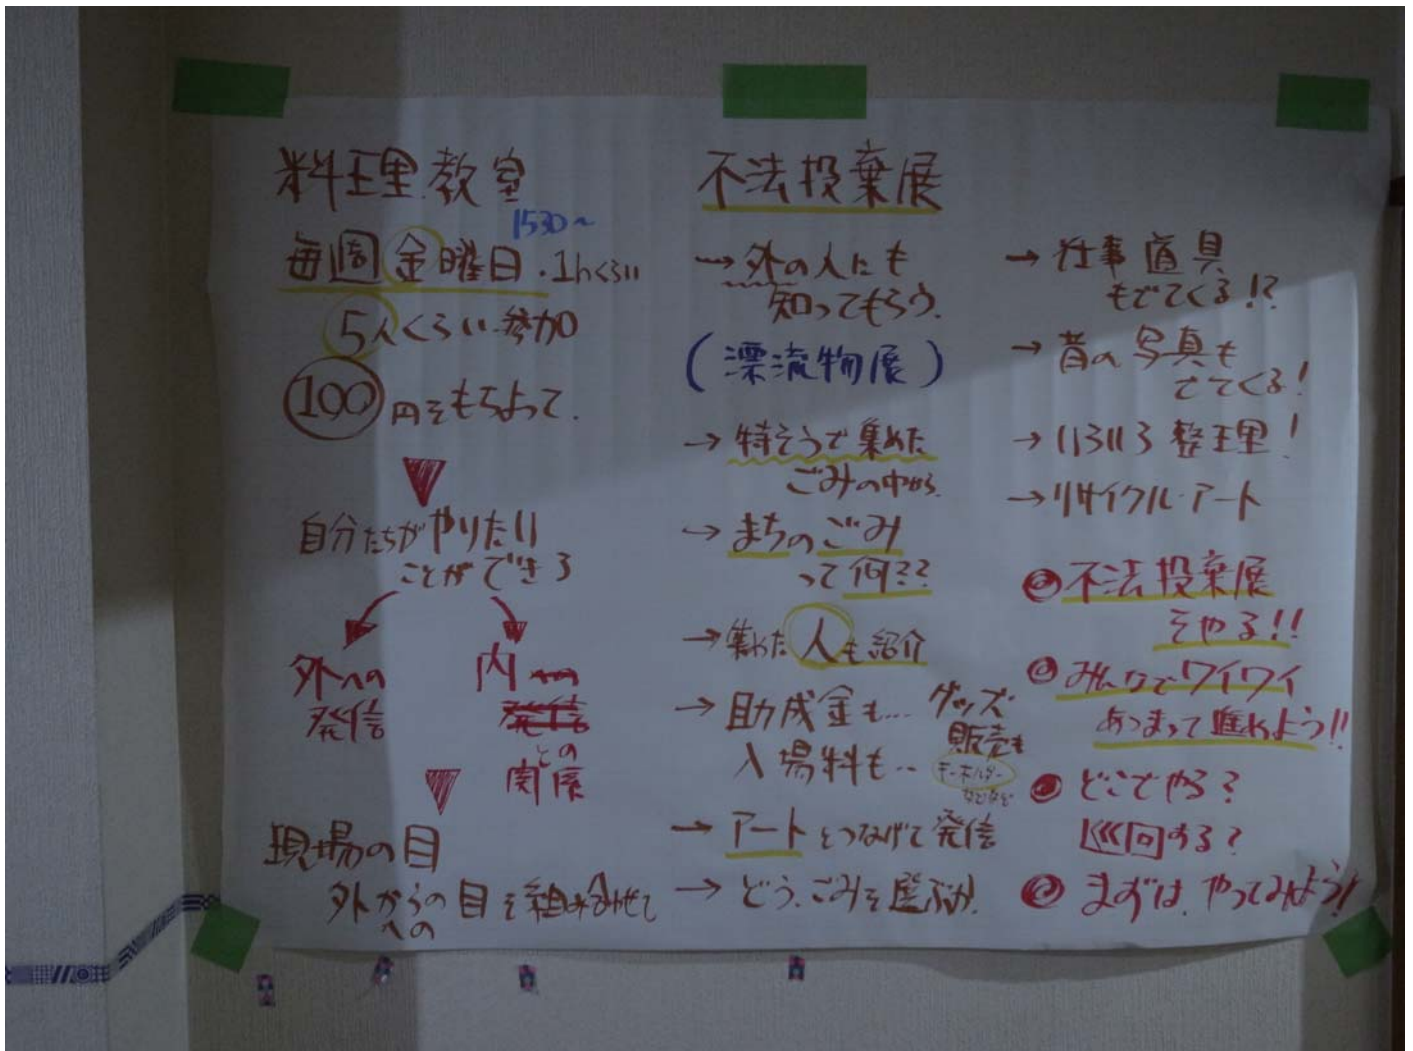 料理教室
1530~
毎週金曜日・1hくらい
5人くらい参加
100円をもちよって.
自分たちがやりたい
ことができる
外への
発信
内への
発信
との
関係
現場の目
外からの目を組み合わせて
への
不法投棄展
→外の人にも
知ってもらう.
(漂流物展)
→特そうで集めた
ごみの中から.
→まちのごみ
って何??
→集めた人も紹介
→助成金も...
入場料も..
グッズ
販売も
キーホルダー
などなど
→アートとつなげて発信
→どう、ごみを選ぶか.
→仕事道具
もでてくる!?
→昔の写真も
でてくる!
→いろいろ整理!
→リサイクル・アート
不法投棄展
をやる!!
みんなでワイワイ
あつまって進めよう!!
どこでやる?
巡回する?
まずは、やってみよう!